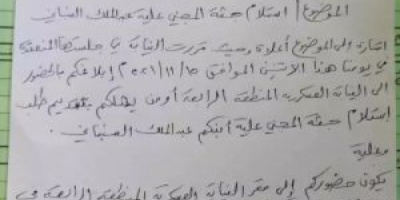 الموضوع / استلام جثة المجني عليه عبدالملك السنباني
اشارة الى الموضوع أعلاه وحيث قررت النيابة في جلستها المنعقدة
في يومنا هذا الاثنين الموافق ١٥/١١/٢٠٢١م إبلاغكم بالحضور
الى النيابة العسكرية المنطقة الرابعة أو من يمثلكم بتقديم طلب
إستلام جثة المجني عليه أبنكم عبدالملك السنباني .
وعليه
يكون حضوركم إلى مقر النيابة العسكرية المنطقة الرابعة في